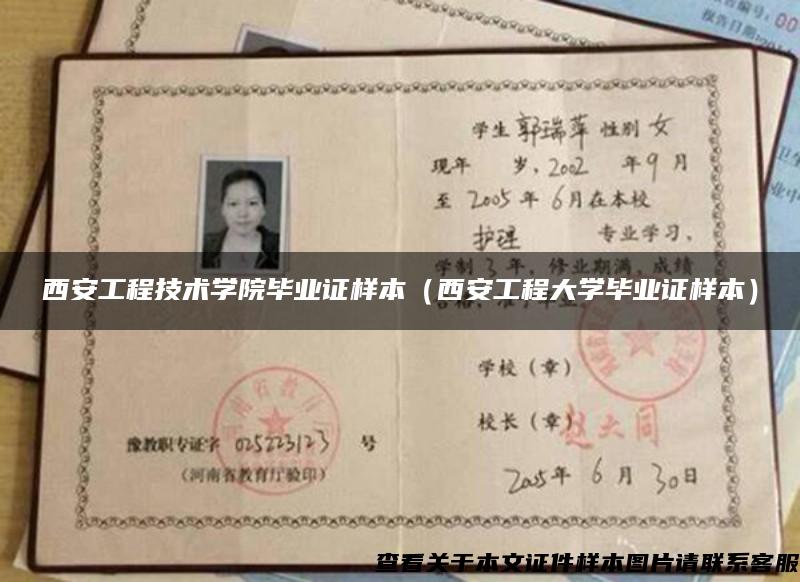 告编号:00
报告日期:201
学生 郭瑞萍 性别 女
现年 岁,2002 年9月
至 2005年 6月在本校
护理 专业学习,
学制 3 年,修业期满,成绩
西安工程技术学院毕业证样本(西安工程大学毕业证样本)
学校(章)
校长(章)赵大同
豫教职专证字 025223123 号
(河南省教育厅验印)
2005年 6月 30日
查看关于本文证件样本图片请联系客服